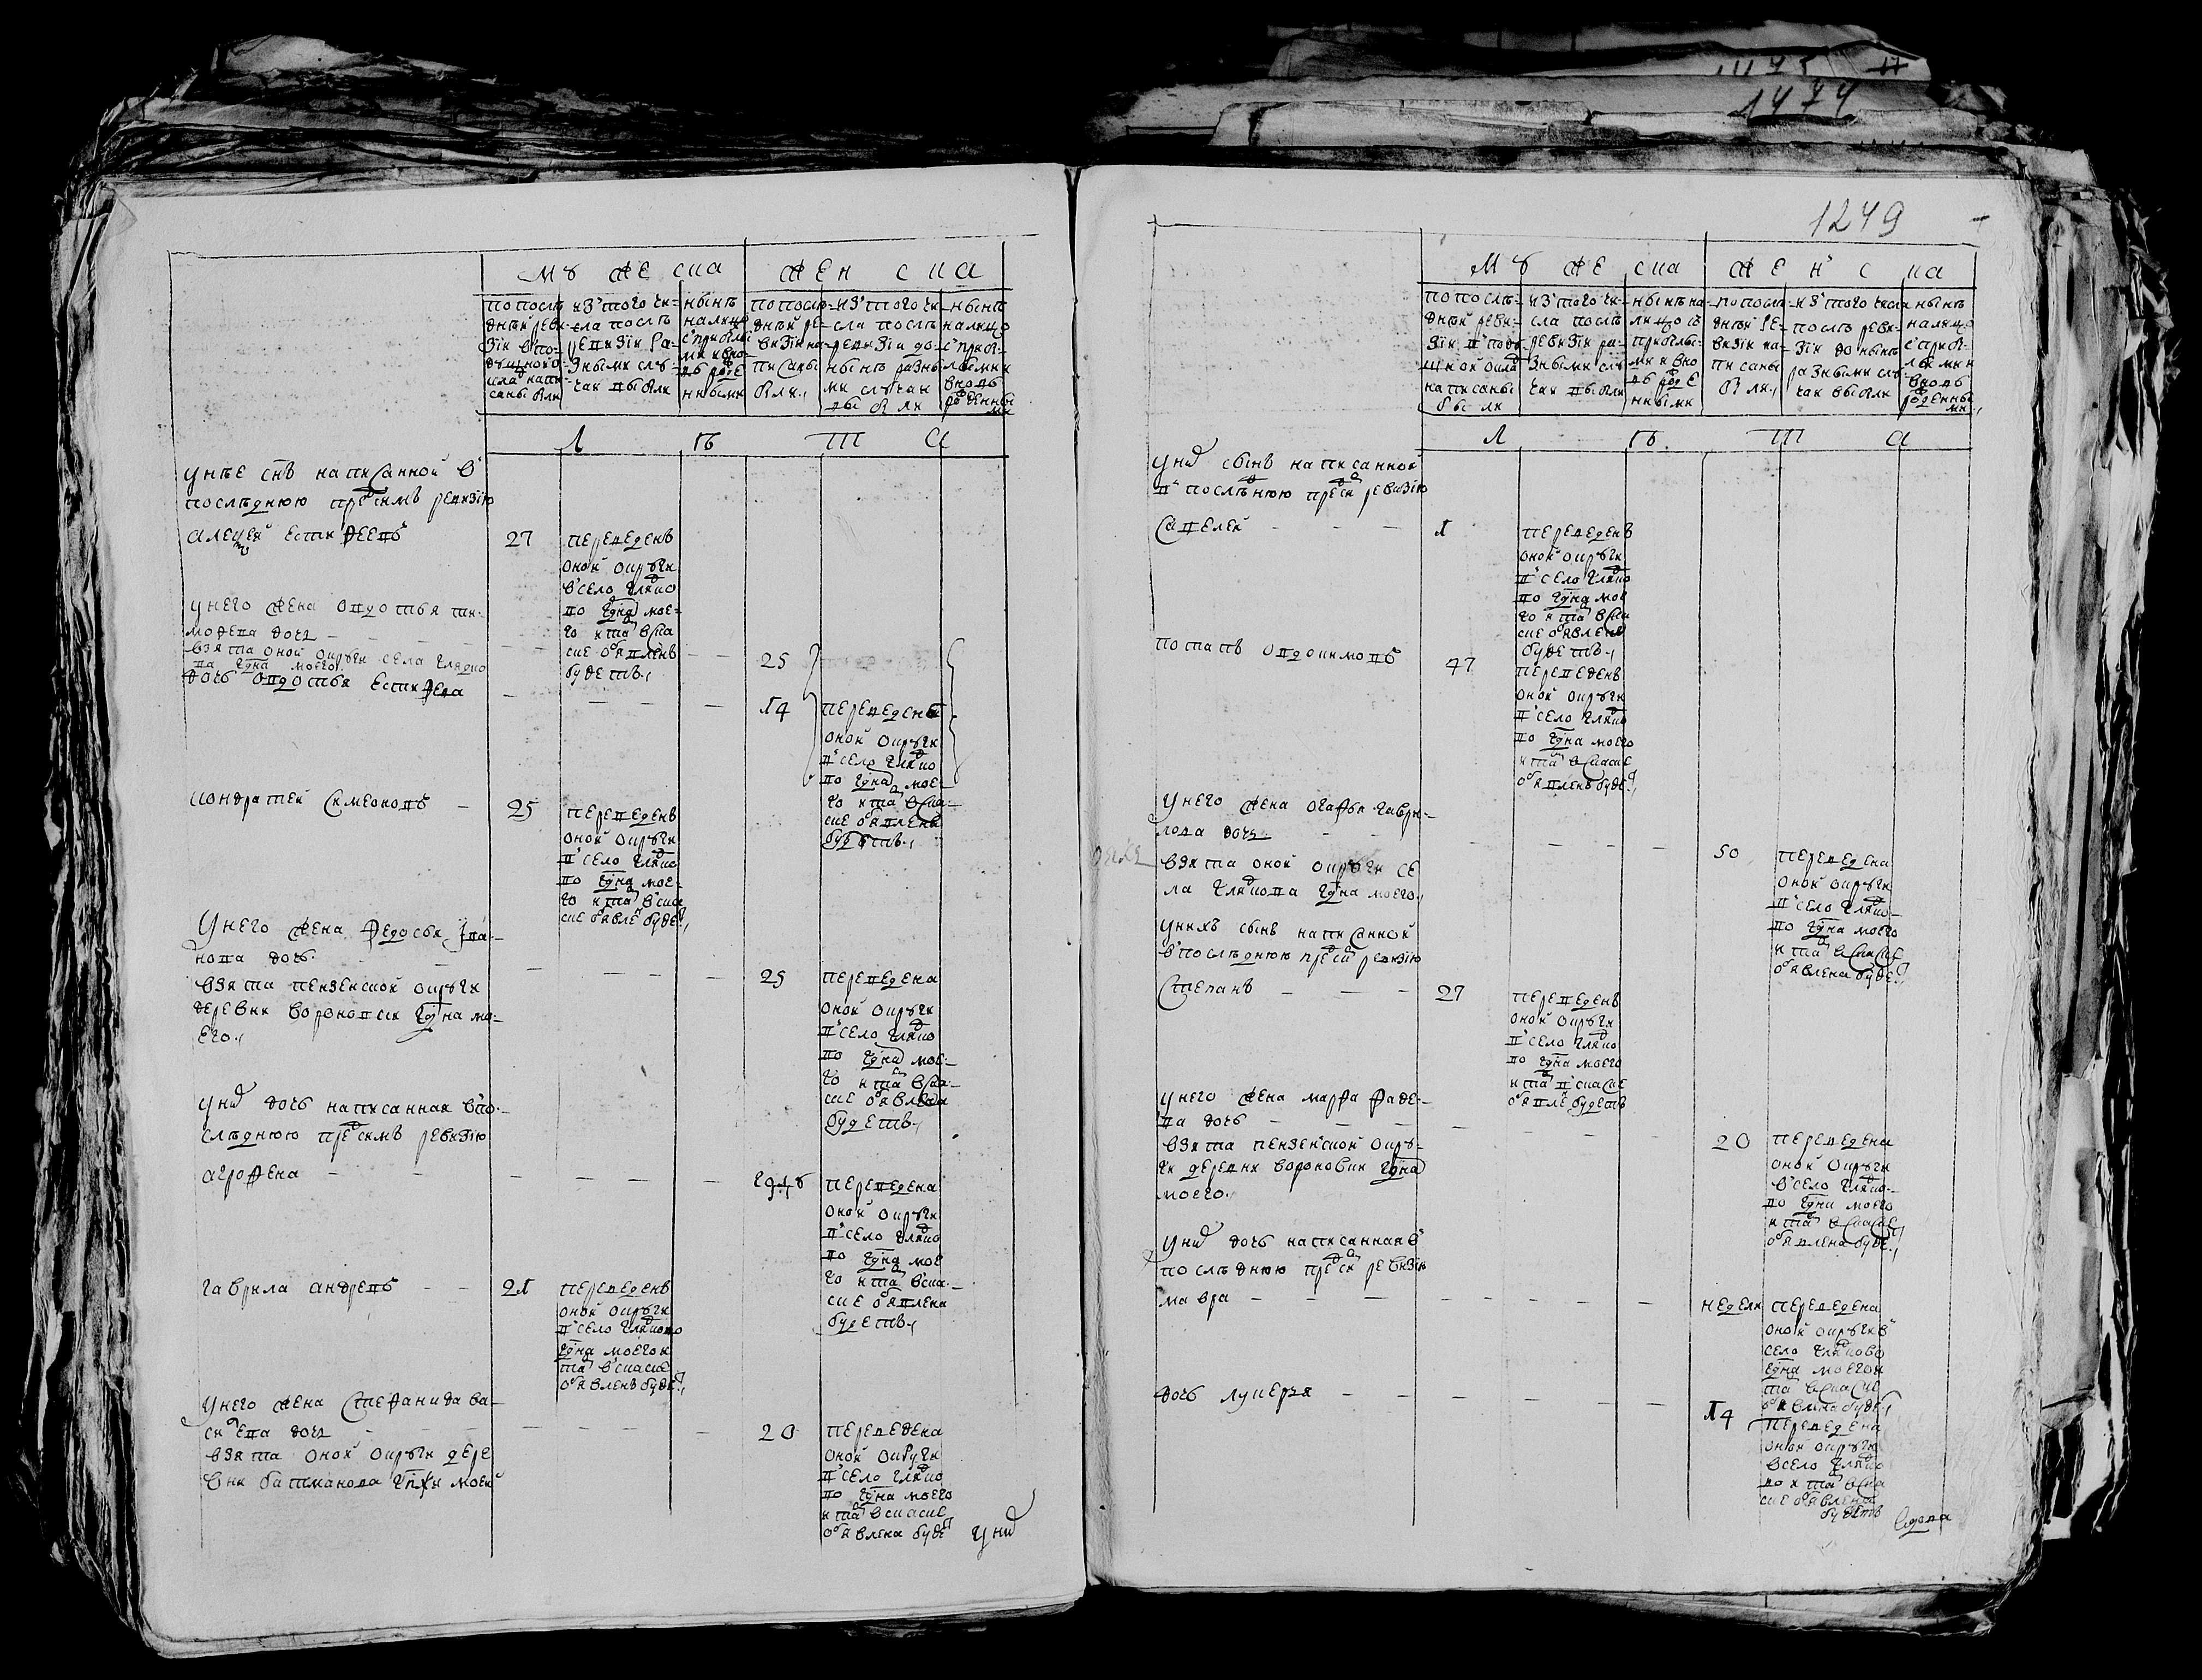 1474
1249
МУЖЕСКА
ЖЕНСКА
по послѣ-
дней реви-
зіи в по-
душной о-
кладъ напи-
саны были
из того чи-
сла послѣ
ревизіи ра-
зными слу-
чаи выбыли
нынѣ
налицо
с прибылы-
ми и вно-
вь рож-
денными
по послѣ-
дней ре-
визіи на-
писаны
были
из того чи-
сла послѣ
ревизіи до-
нынѣ разны-
ми случаи
выбыли
нынѣ
налицо
с прибы-
лыми и
вновь
рожденны
ми
Л Ѣ Т А
у нее снъ написанной в
последнюю пред симъ ревизию
алексей естифеевъ
27
переведенъ
оной округи
в село
во гдна мое-
го и та в ска
ске объявленъ
будетъ
у него жена авдотья ти-
мофева дочь
взята оной округи села
ва гдна моего
25
дочь авдотья естифева
14
переведены
оной округи
в село
во гдна мое-
го и та в ска-
ске объявлены
будетъ
кондратей симеоновъ
25
переведенъ
оной округи
в село
во гдна мое-
го и та в ска
ске объявле буде
у него жена федосья
нова дочь
взята пензенской округи
деревни вороновки гдна мо-
его
25
переведена
оной округи
в село
во гдна мое-
го и та в ска-
ске объявлена
будетъ
у них дочь написанная в по-
следнюю пред симъ ревизию
агрофена
переведена
оной округи
в село
во гдна мое
го и та в ска-
ске объявлена
будетъ
гаврила андревъ
21
переведенъ
оной округи
в село
гдна моего и
та в скаске
объявленъ буде
у него жена стефанида ва-
сильева дочь
взята оной округи дере
вни батманова гпжи моей
20
переведена
оной округи
в село
во гдна моего
и та в скаске
объявлена буде
у них
МУЖЕСКА
ЖЕНСКА
по послѣ-
дней реви-
зіи в поду-
шной окла
написаны
были
из того чи-
сла послѣ
ревизіи ра-
зными слу
чаи выбыли
нынѣ на-
лицо съ
прибылы-
ми и вно
вь рож
денными
по послѣ-
дней ре-
визіи на-
писаны
были
из того числа
послѣ реви-
зіи до нынѣ
разными слу-
чаи выбыли
нынѣ
налицо
с прибы-
лыми и
вновь
рожденны
ми
Л Ѣ Т А
у них сынъ написанной
в последнюю пред си ревизию
савелей
1
переведенъ
оной округи
в село
во гдна мое
го и та в ска
ске объявленъ
будетъ
потапъ евдокимовъ
47
переведенъ
оной округи
в село
во гдна моего
и та в скаске
объявленъ буде
у него жена агафья гаври-
лова дочь
взята оной округи се
ла гдна моего
50
переведена
оной округи
в село
во гдна моего
и та в скаске
объявлена буде
у нихъ сынъ написанной
в последнюю пред си ревизию
степанъ
27
переведенъ
оной округи
в село
во гдна моего
и та в скаске
объявле будетъ
у него жена марфа фаде-
ва дочь
взята пензенской окру-
ги деревни вороновки гдна
моего
20
переведена
оной округи
в село
во гдна моего
и та в скаске
объявлена буде
у них дочь написанная в
последнюю пред си ревизию
мавра
недели
переведена
оной округи в
село
гдна моего и
та в скаске
объявлена буде
дочь лукерья
14
переведена
оной округи
в село
во и та в ска
ске объявлена
будетъ
вдова